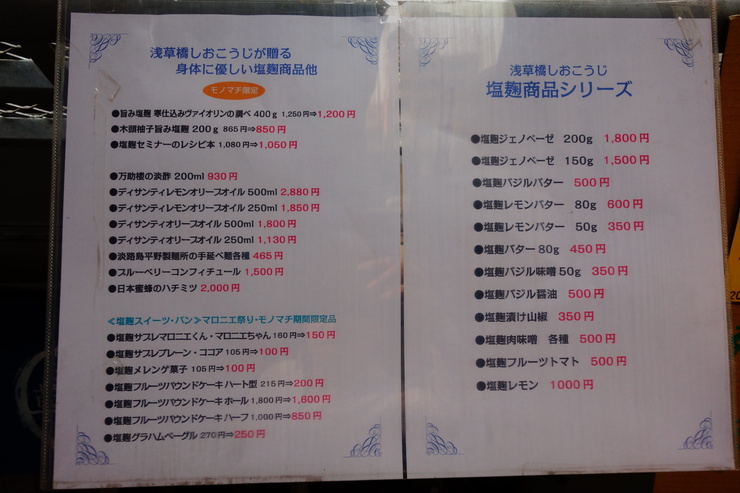 浅草橋しおこうじが贈る
身体に優しい塩麹商品他
モノマチ限定
●旨み塩麹 寒仕込みヴァイオリンの調べ 400g 1,250円⇒1,200円
●木頭柚子旨み塩麹 200g 865円⇒850円
●塩麹セミナーのレシピ本 1,080円⇒1,050円
●万助楼の淡酢 200ml 930円
●ディサンティレモンオリーブオイル 500ml 2,880円
●ディサンティレモンオリーブオイル 250ml 1,850円
●ディサンティオリーブオイル 500ml 1,800円
●ディサンティオリーブオイル 250ml 1,130円
●淡路島平野製麺所の手延べ麺各種 465円
●ブルーベリーコンフィチュール 1,500円
●日本蜜蜂のハチミツ 2,000円
≪塩麹スイーツ・パン≫マロニエ祭り・モノマチ期間限定品
●塩麹サブレマロニエくん・マロニエちゃん 160円⇒150円
●塩麹サブレプレーン・ココア 105円⇒100円
●塩麹メレンゲ菓子 105円⇒100円
●塩麹フルーツパウンドケーキ ハート型 215円⇒200円
●塩麹フルーツパウンドケーキ ホール 1,800円⇒1,600円
●塩麹フルーツパウンドケーキ ハーフ 1,000円⇒850円
●塩麹グラハムベーグル 270円⇒250円
浅草橋しおこうじ
塩麹商品シリーズ
●塩麹ジェノベーゼ 200g 1,800円
●塩麹ジェノベーゼ 150g 1,500円
●塩麹バジルバター 500円
●塩麹レモンバター 80g 600円
●塩麹レモンバター 50g 350円
●塩麹バター80g 450円
●塩麹バジル味噌50g 350円
●塩麹バジル醤油 500円
●塩麹漬け山椒 350円
●塩麹肉味噌 各種 500円
●塩麹フルーツトマト 500円
●塩麹レモン 1000円